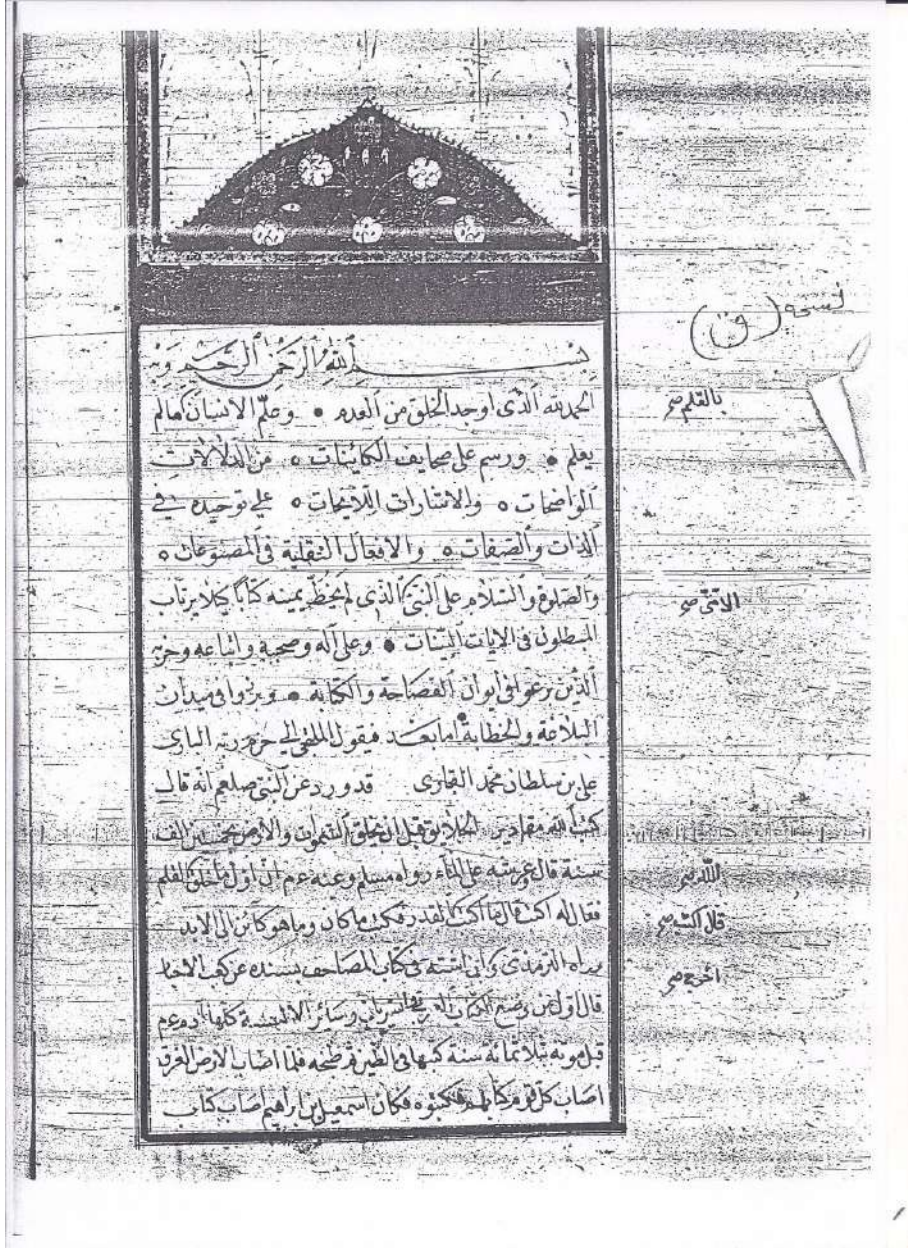 نسخه (ق)
بسم الله الرحمن الرحيم وبه
الحمد لله الذى اوجد الخلق من العدم • وعلّم الانسان مالم
بالقلم صح
يعلم • ورسم على صحايف الكائينات ه من الدلالات
الواضحات ه والاشارات اللايحات ه على توحيده فى
الذات والصفات ه والافعال النقلية فى المصنوعات ه
والصلوة والسلام على النبى الذى لم يخط بيمينه كتابا كيلا يرتاب
الامّى صح
المبطلون فى الايات البينات • وعلى آله وصحبه واتباعه وحزبه
الذين برعوا فى ايوان الفصاحة والكتابة • وبرزوا فى ميدان
البلاغة والخطابة • اما بعد فيقول الملتجى الى حرم ربه البارى
على بن سلطان محمد القارى قد ورد عن النبى صلعم انه قال
كتب الله مقادير الخلايق قبل ان يخلق السموات والارض بخمسين الف
سنة قال وعرشه على الماء رواه مسلم وعنه عم ان اول ما خلق القلم
الله صح
فقال له اكتب قال ما اكتب القدر فكتب ما كان وما هو كائن الى الابد
قال اكتب صح
رواه الترمذى وابن اشته فى كتاب المصاحف بسنده عن كعب الاحبار
اخرج صح
قال اول من وضع الكتاب العربى والسريانى وسائر الالسنة كلها آدم عم
قبل موته بثلاثمائة سنة كتبها فى الطين ثم طبخه فلما اصاب الارض الغرق
اصاب كل قوم كتابهم فكتبوه فكان اسمعيل بن ابراهيم اصاب كتاب